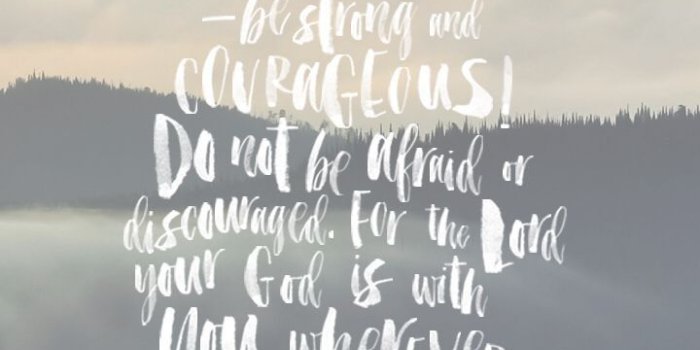 —be strong and
COURAGEOUS!
Do not be afraid or
discouraged. For the Lord
your God is with
you wherever